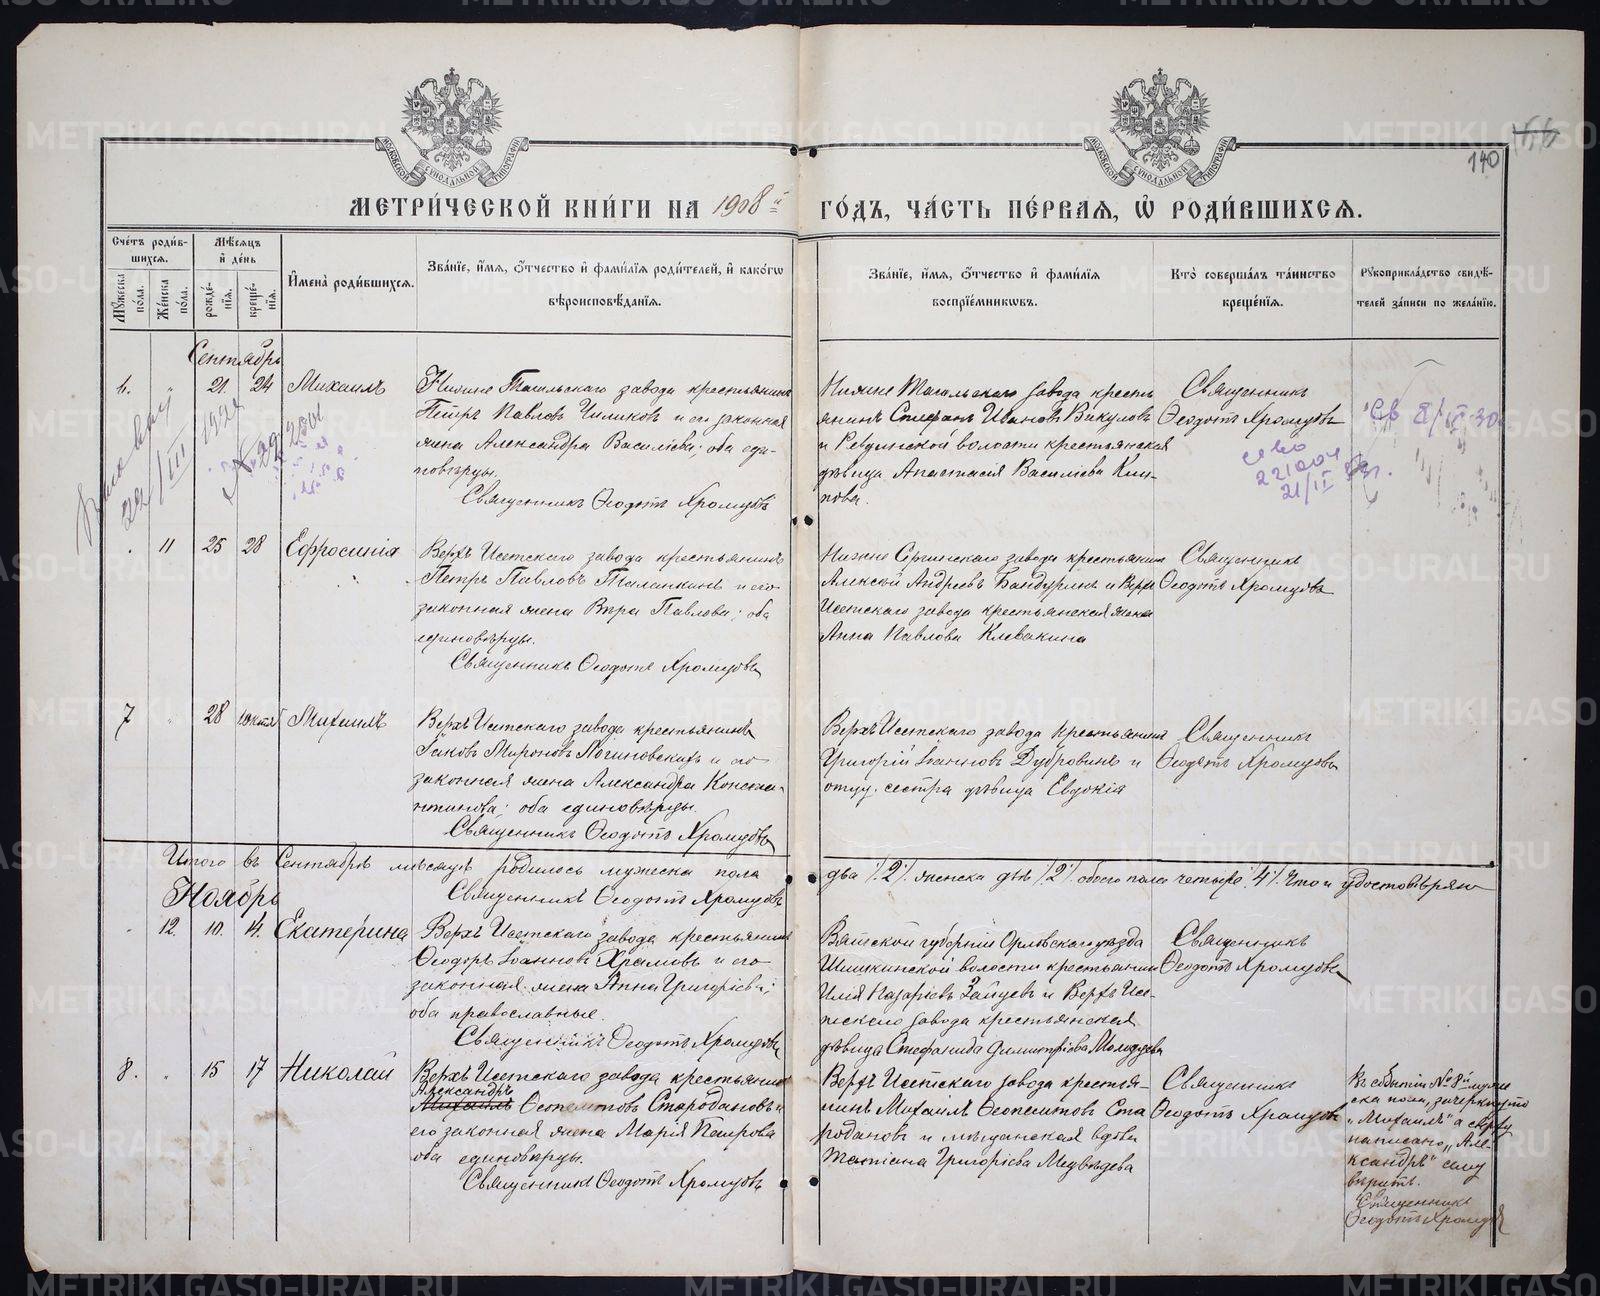 МЕТРИ́ЧЕСКОЙ КНИ́ГИ НА 1908й ГО́ДЪ, ЧА́СТЬ ПЕ́РВАѦ, Ѡ РОДИ́ВШИХСѦ.
140
Сче́тъ роди́в-
шихсѧ.
Мꙋ́жеска по́ла.
Же́нска по́ла.
Мѣ́сѧцъ
и҆ де́нь
рожде́-
нїѧ.
креще́-
нїѧ.
И҆мена̀ роди́вшихсѧ.
Зва́нїе, и҆́мѧ, ѻ҆́тчество и҆ фами́лїѧ роди́телей, и҆ како́гѡ
вѣроисповѣ́данїѧ.
Зва́нїе, и҆́мѧ, ѻ҆́тчество и҆ фами́лїѧ
воспрїе́мникѡвъ.
Кто̀ соверша́лъ та́инство
креще́нїѧ.
Рꙋкоприкла́дство свидѣ́-
телей за́писи по жела́нїю.
Сентябрь
6. " 21 24 Михаилъ
Нижне Тагильскаго завода крестьянинъ
Петръ Павловъ Чиликовъ и его законная
жена Александра Васильева; оба еди-
новѣрцы.
Священникъ Ѳеодотъ Хромцовъ
Нижне Тагильскаго завода кресть-
янинъ Стефанъ Ивановъ Викуловъ
и Ревдинской волости крестьянская
дѣвица Анастасія Васильева
Священникъ
Ѳеодотъ Хромцовъ
21/II
11 25 28 Ефросинія
Верхъ Исетскаго завода крестьянинъ
Петръ Павловъ Талапкинъ и его
законная жена Вѣра Павлова; оба
единовѣрцы.
Священникъ Ѳеодотъ Хромцовъ
Нижне Сергинскаго завода крестьянинъ
Алексѣй Андреевъ Бандуринъ и Верхъ
Исетскаго завода крестьянская жена
Анна Павлова Клевакина
Священникъ
Ѳеодотъ Хромцовъ
7 " 28 1 Октяб Михаилъ
Верхъ Исетскаго завода крестьянинъ
Іаковъ Мироновъ Логиновскихъ и его
законная жена Александра Конста-
нтинова; оба единовѣрцы.
Священникъ Ѳеодотъ Хромцовъ
Верхъ Исетскаго завода крестьянинъ
Григорій Іоанновъ Дубровинъ и
отцу сестра дѣвица Евдокія
Священникъ
Ѳеодотъ Хромцовъ
Итого въ Сентябрѣ мѣсяцѣ родилось мужеска пола два /2/ женска двѣ /2/ обоего пола четыре /4/. Что и удостовѣряю
Священникъ Ѳеодотъ Хромцовъ
Ноябрь
12. 10. 14. Екатерина
Верхъ Исетскаго завода крестьянинъ
Ѳеодоръ Іоанновъ Храмовъ и его
законная жена Анна Григорьева;
оба православные.
Священникъ Ѳеодотъ Хромцовъ
Вятской губерніи Орловскаго уѣзда
Шишкинской волости крестьянинъ
Илія Назарьевъ Зайцевъ и Верхъ Исе-
тскаго завода крестьянская
дѣвица Стефанида Димитріева Молодцева
Священникъ
Ѳеодотъ Хромцовъ
8. " 15 17 Николай
Верхъ Исетскаго завода крестьянинъ
Александръ
Михаилъ Ѳеопемптовъ Стародановъ и
его законная жена Марія Петрова
оба единовѣрцы.
Священникъ Ѳеодотъ Хромцовъ
Верхъ Исетскаго завода крестья-
нинъ Михаилъ Ѳеопемптовъ Ста
родановъ и мѣщанская вдова
Татіана Григорьева Медвѣдева
Священникъ
Ѳеодотъ Хромцовъ
Въ событіи № 8й муже
ска пола, зачеркнуто
"Михаилъ" а сверху
написано "Але-
ксандръ" сему
вѣрить.
Священникъ
Ѳеодотъ Хромцовъ
METRIKI.GASO-URAL.RU